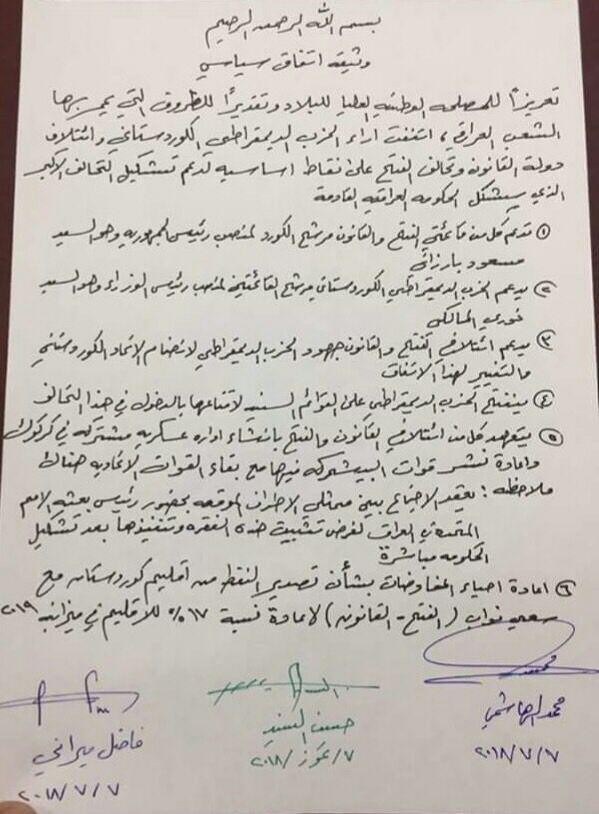 بسم الله الرحمن الرحيم
وثيقة اتفاق سياسي
تعزيزاً للمصلحه الوطنيه العليا للبلاد وتقديراً للظروف التي يمر بها
الشعب العراقي، اتفقت اراء الحزب الديمقراطي الكوردستاني وائتلاف
دولة القانون وتحالف الفتح على نقاط اساسيه لدعم تشكيل التحالف الاكبر
الذي سيشكل الحكومه العراقيه القادمة
١ تدعم كل من قائمتي الفتح والقانون مرشح الكورد لمنصب رئيس الجمهوريه وهو السيد
مسعود بارزاني
٢ يدعم الحزب الديمقراطي الكوردستاني مرشح القائمتين لمنصب رئيس الوزراء وهو السيد
نوري المالكي
٣ يدعم ائتلافي الفتح والقانون جهود الحزب الديمقراطي لانضمام الاتحاد الكوردستاني
والتغيير لهذا الاتفاق
٤ ينفتح الحزب الديمقراطي على القوائم السنيه لاقناعها بالدخول في هذا التحالف
٥ يتعهد كل من ائتلافي القانون والفتح بانشاء اداره عسكريه مشتركه في كركوك
واعادة نشر قوات البيشمركه فيها مع بقاء القوات الاتحاديه هناك
ملاحظه: يعقد الاجتماع بين ممثلي الاطراف الموقعه بحضور رئيس بعثه الامم
المتحده في العراق لغرض تثبيت هذه الفقره وتنفيذها بعد تشكيل
الحكومه مباشرة
٦ اعادة احياء المفاوضات بشأن تصدير النفط من اقليم كوردستان مع
سعي نواب (الفتح - القانون) لاعادة نسبة ١٧٪ للاقليم في ميزانيه ٢٠١٩
محمد الهاشمي
٢٠١٨/٧/٧
حسن السنيد
٧/تموز/٢٠١٨
فاضل ميراني
٢٠١٨/٧/٧